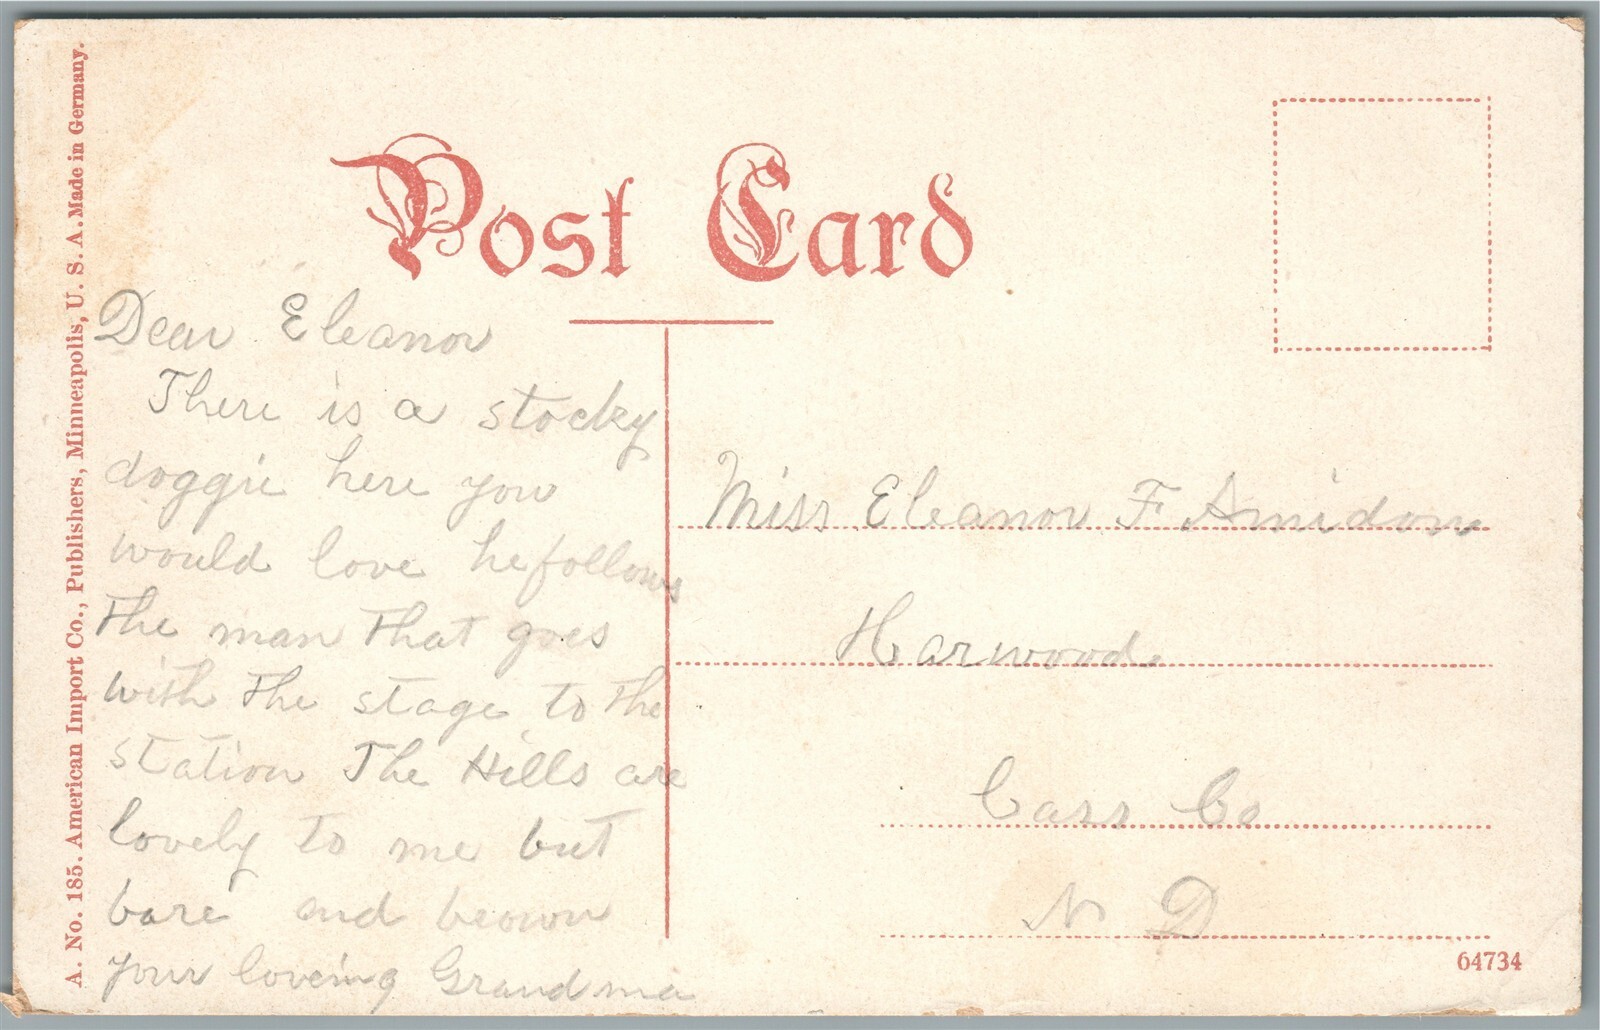 A. No. 185. American Import Co., Publishers, Minneapolis, U. S. A. Made in Germany.
Post Card
Dear Eleanor
There is a stocky
doggie here you
would love he follows
the man that goes
with the stage to the
station The Hills are
lovely to me but
bare and brown
your loveing Grandma
Miss Eleanor F Amidon
Harwood
Cass Co
N D
64734